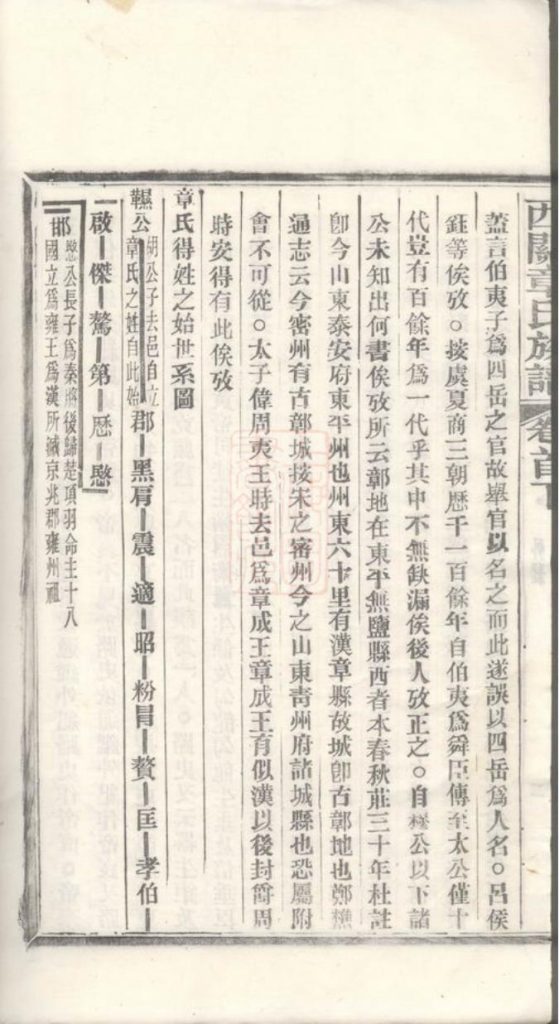 西關章氏族譜 卷首下
蓋言伯夷子爲四岳之官故舉官以名之而此遂誤以四岳爲人名○呂侯
鈺等俟攷○按虞夏商三朝歴千一百餘年自伯夷爲舜臣傳至太公僅十
代豈有百餘年爲一代乎其中不無缺漏俟後人攷正之○自穆公以下諸
公未知出何書俟攷所云鄣地在東平無鹽縣西者本春秋莊三十年杜註
卽今山東泰安府東平州也州東六十里有漢章縣故城卽古鄣地也鄭樵
通志云今密州有古鄣城按宋之密州今之山東靑州府諸城縣也恐屬附
會不可從○太子偉周夷王時去邑爲章成王章成王有似漢以後封爵周
時安得有此俟攷
章氏得姓之始世系圖
韞公 胡公子去邑自立
章氏之姓自此始 郡 黑肩 震 適 昭 粉冒 贅 匡 孝伯
啟 傑 驁 第 歴 愍
邯 愍公長子爲秦將後歸楚項羽命主十八
國立爲雍王爲漢所滅京兆郡雍州祖